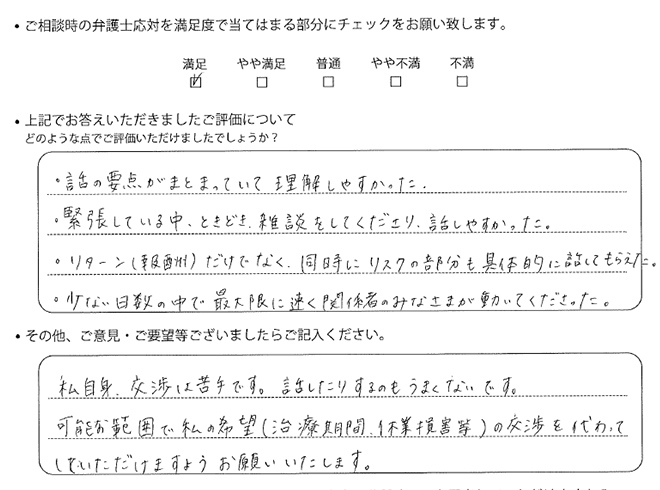 ・ご相談時の弁護士応対を満足度で当てはまる部分にチェックをお願い致します。
満足 やや満足 普通 やや不満 不満
・上記でお答えいただきましたご評価について
どのような点でご評価いただけましたでしょうか？
・話の要点がまとまっていて理解しやすかった.
・緊張している中、ときどき、雑談をしてくださり、話しやすかった。
・リターン(報酬)だけでなく、同時にリスクの部分も具体的に話してもらえた。
・少ない日数の中で最大限に速く関係者のみなさまが動いてくださった。
・その他、ご意見・ご要望等ございましたらご記入ください。
私自身、交渉は苦手です。話したりするのもうまくないです。
可能な範囲で私の希望(治療期間、休業損害等)の交渉を代わって
していただけますようお願いいたします。